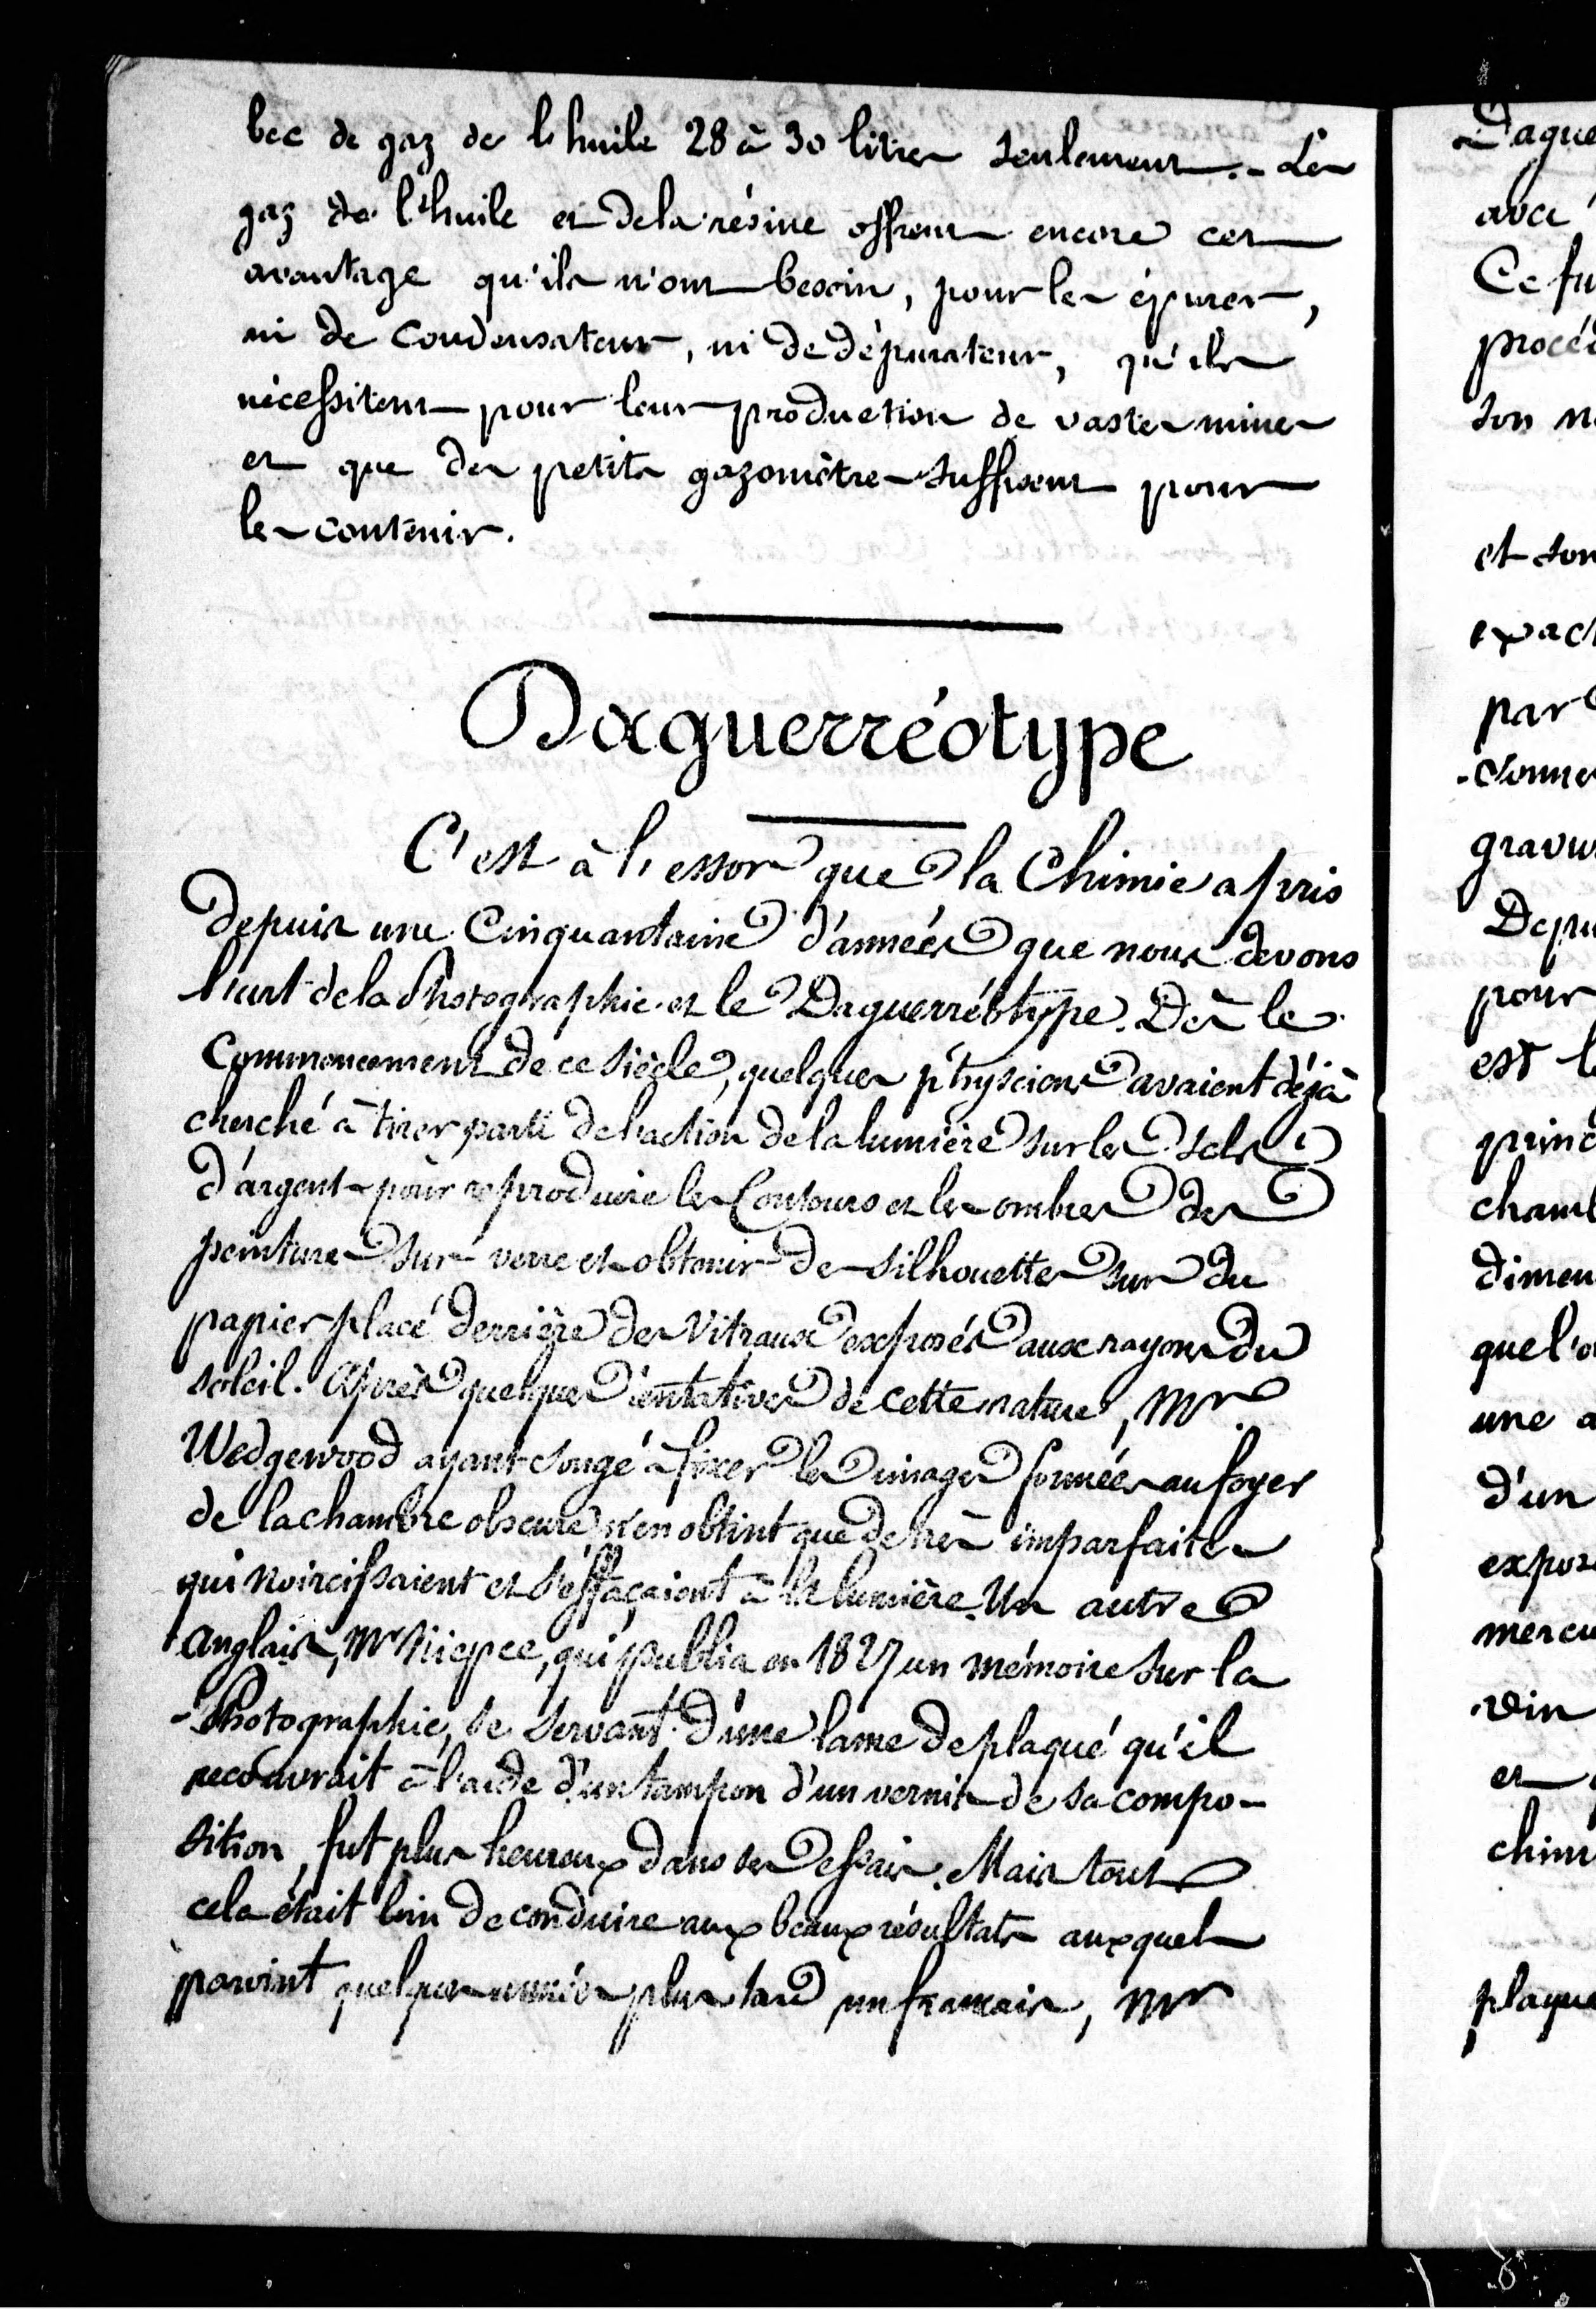 bec de gaz de l'huile 28 à 30 litres seulement. - Les
gaz de l'huile et de la résine offrent encore cet
avantage qu'ils n'ont besoin, pour les épurer,
ni de condensateur, ni de dépurateur, qu'ils
nécessitent pour leur production de vastes mines
et que des petits gazomètres suffisent pour
les contenir.
Daguerréotype
C'est à l'essor que la Chimie a pris
depuis une Cinquantaine d'années que nous devons
l'art de la Photographie et le Daguerréotype. Dès le
Commencement de ce siècle, quelques physciens avaient déjà
cherché à tirer parti de l'action de la lumière sur les sels
d'argent pour reproduire les Contours et les ombres des
peintures sur verre et obtenir des silhouettes sur du
papier placé derrière des Vitraux exposés aux rayons du
soleil. Après quelques tentatives de cette nature, Mr
Wedgewood ayant songé à fixer les images formées au foyer
de la chambre obscure n'en obtint que de très imparfaites
qui noircissaient et s'effaçaient à la lumière. Un autre
anglais, Mr Niepce, qui publia en 1827 un mémoire sur la
Photographie, se servant d'une lame de plaqué qu'il
recouvrait à l'aide d'un tampon d'un vernis de sa compo-
sition, fut plus heureux dans ses essais. Mais tout
cela était loin de conduire aux beaux résultats auxquels
parvint quelques années plus tard un francais, Mr
Dague
avec
Ce fu
procéd
son n
et son
exact
par
donner
gravu
Depu
pour
est l
princ
chamb
dimen
que l'o
une a
d'un
expos
mercu
et
chim
plaque